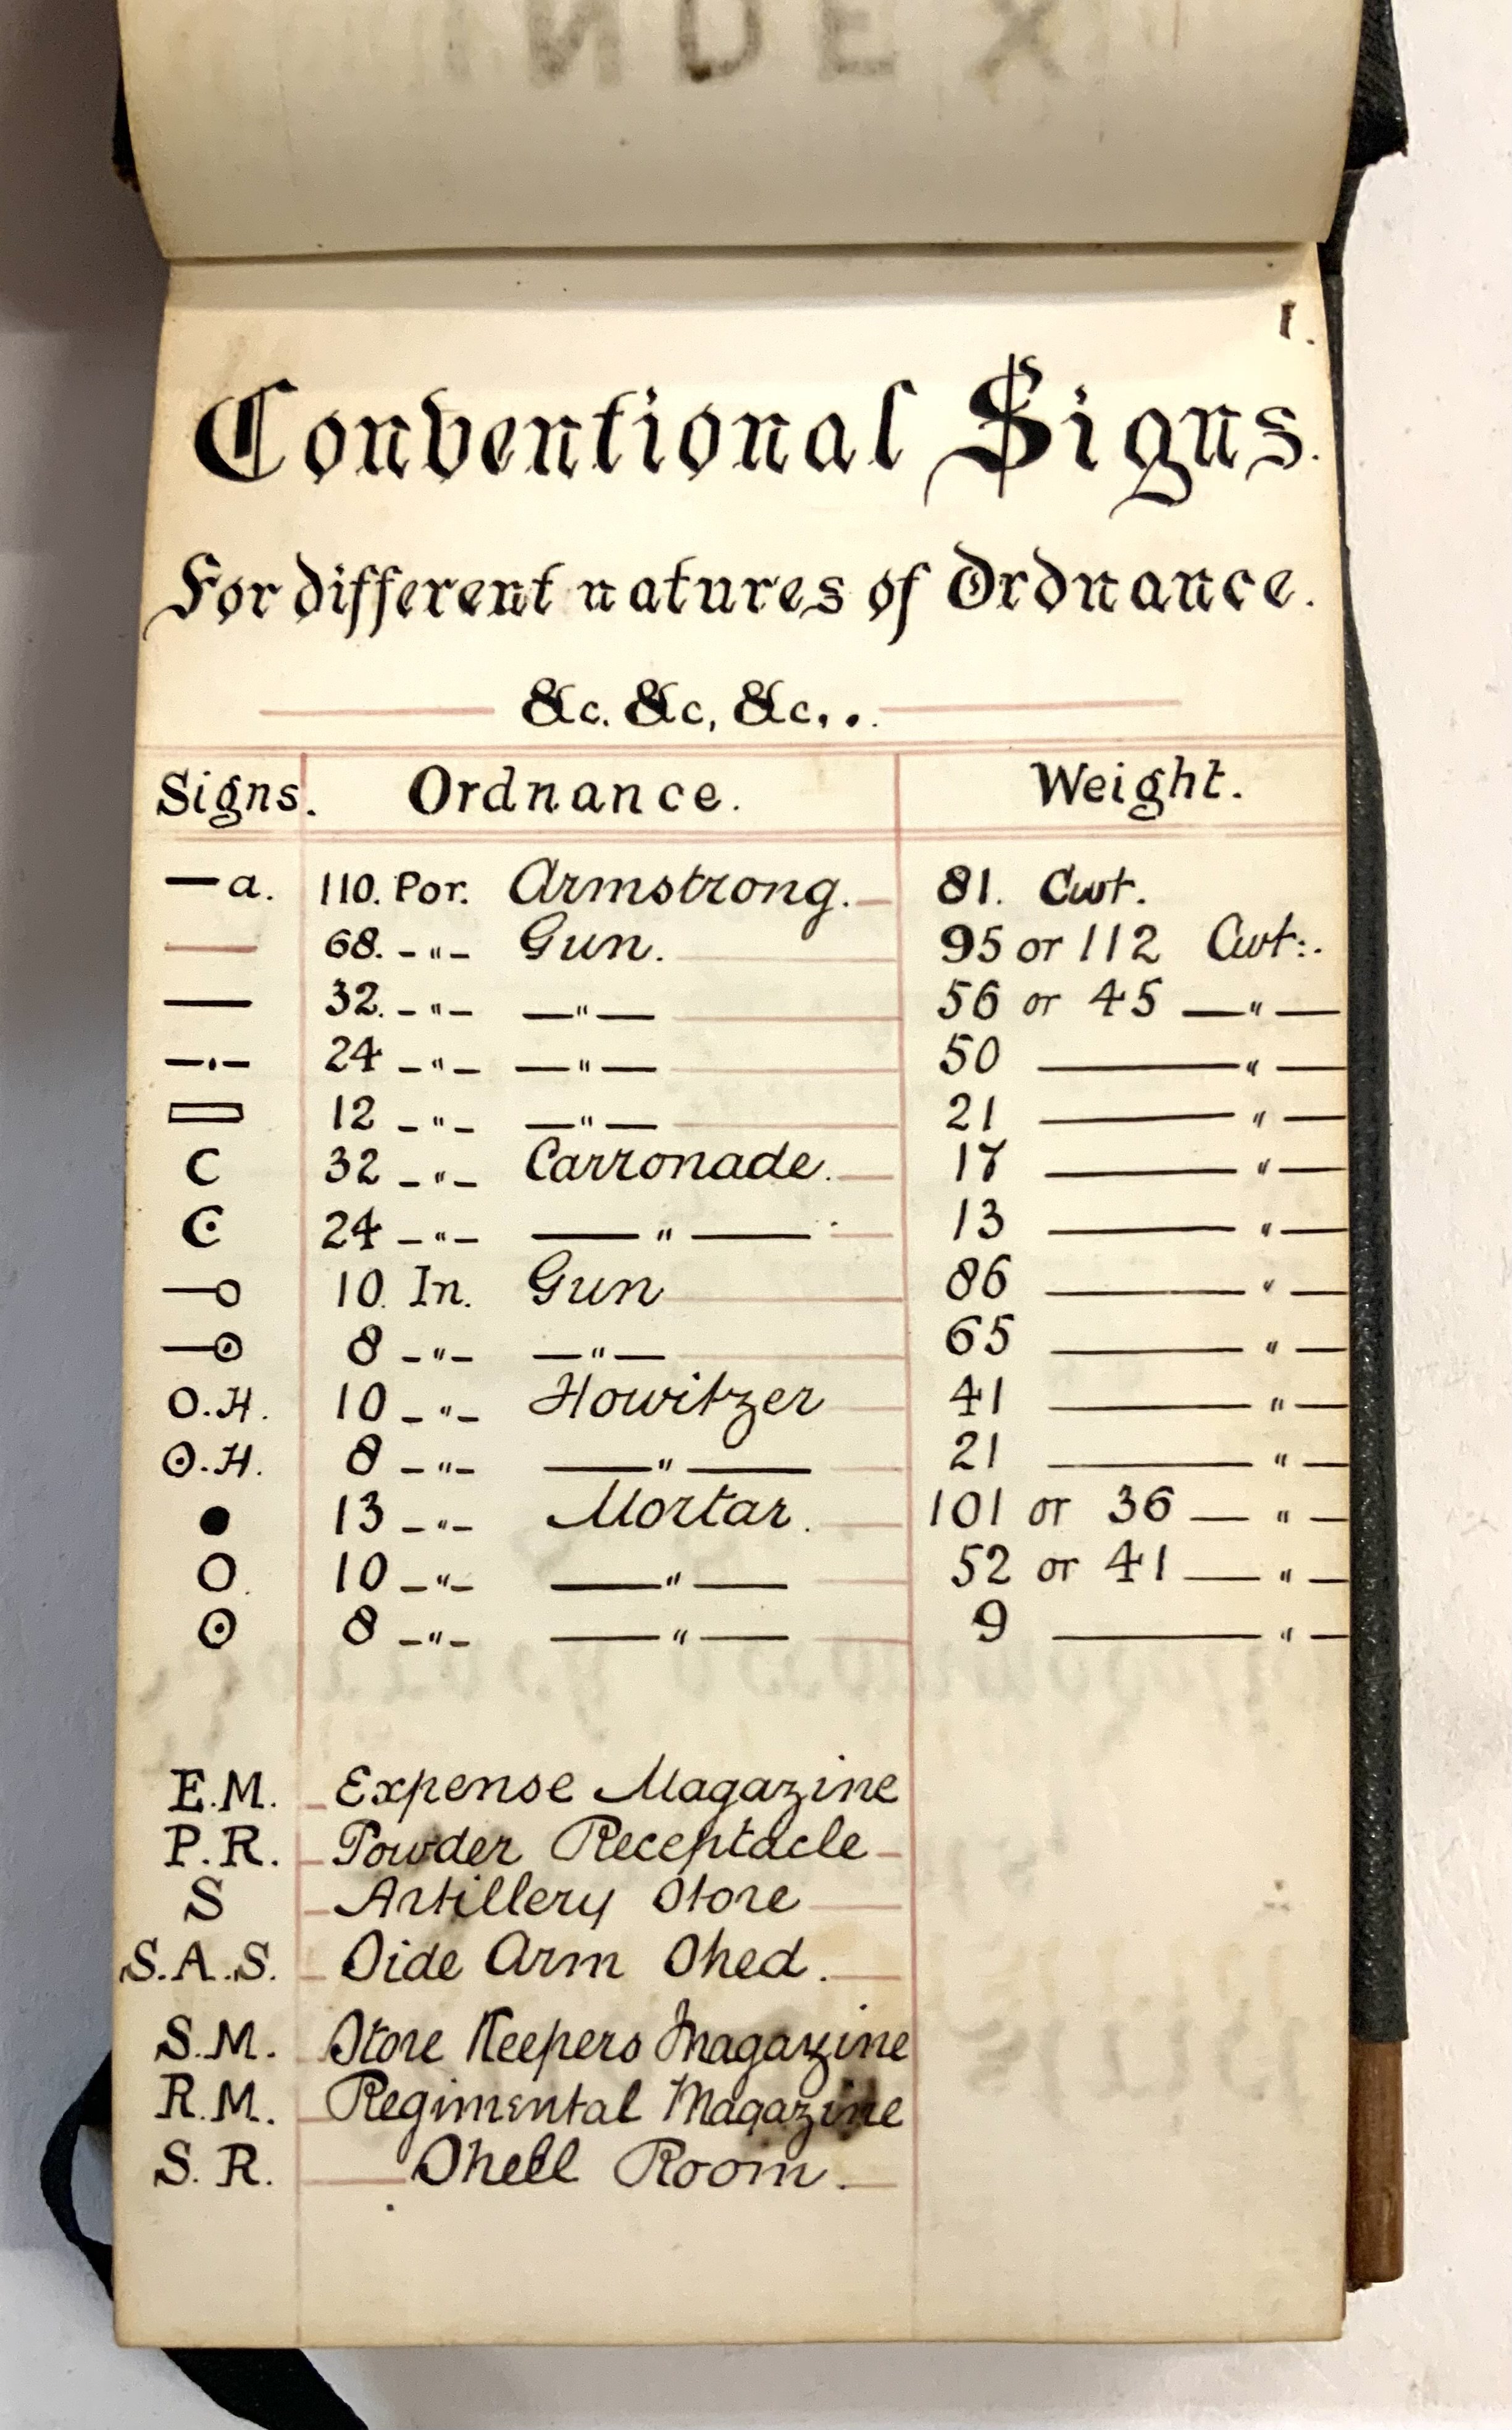 INDEX
1.
Conventional Signs.
For different natures of Ordnance.
&c. &c, &c..
Signs. Ordnance. Weight.
—a. 110. Por. Armstrong. 81. Cwt.
— 68. -"- Gun. 95 or 112 Cwt:.
— 32. -"- —"— 56 or 45 —"—
-·- 24 -"- —"— 50 —"—
▭ 12 -"- —"— 21 —"—
C 32 -"- Carronade. 17 —"—
C· 24 -"- —"— 13 —"—
—o 10. In. Gun 86 —"—
—⊙ 8 -"- —"— 65 —"—
O.H. 10 -"- Howitzer 41 —"—
⊙.H. 8 -"- —"— 21 —"—
● 13 -"- Mortar. 101 or 36 —"—
○ 10 -"- —"— 52 or 41 —"—
⊙ 8 -"- —"— 9 —"—
E.M. Expense Magazine
P.R. Powder Receptacle
S Artillery Store
S.A.S. Side Arm Shed.
S.M. Store Keepers Magazine
R.M. Regimental Magazine
S.R. Shell Room.